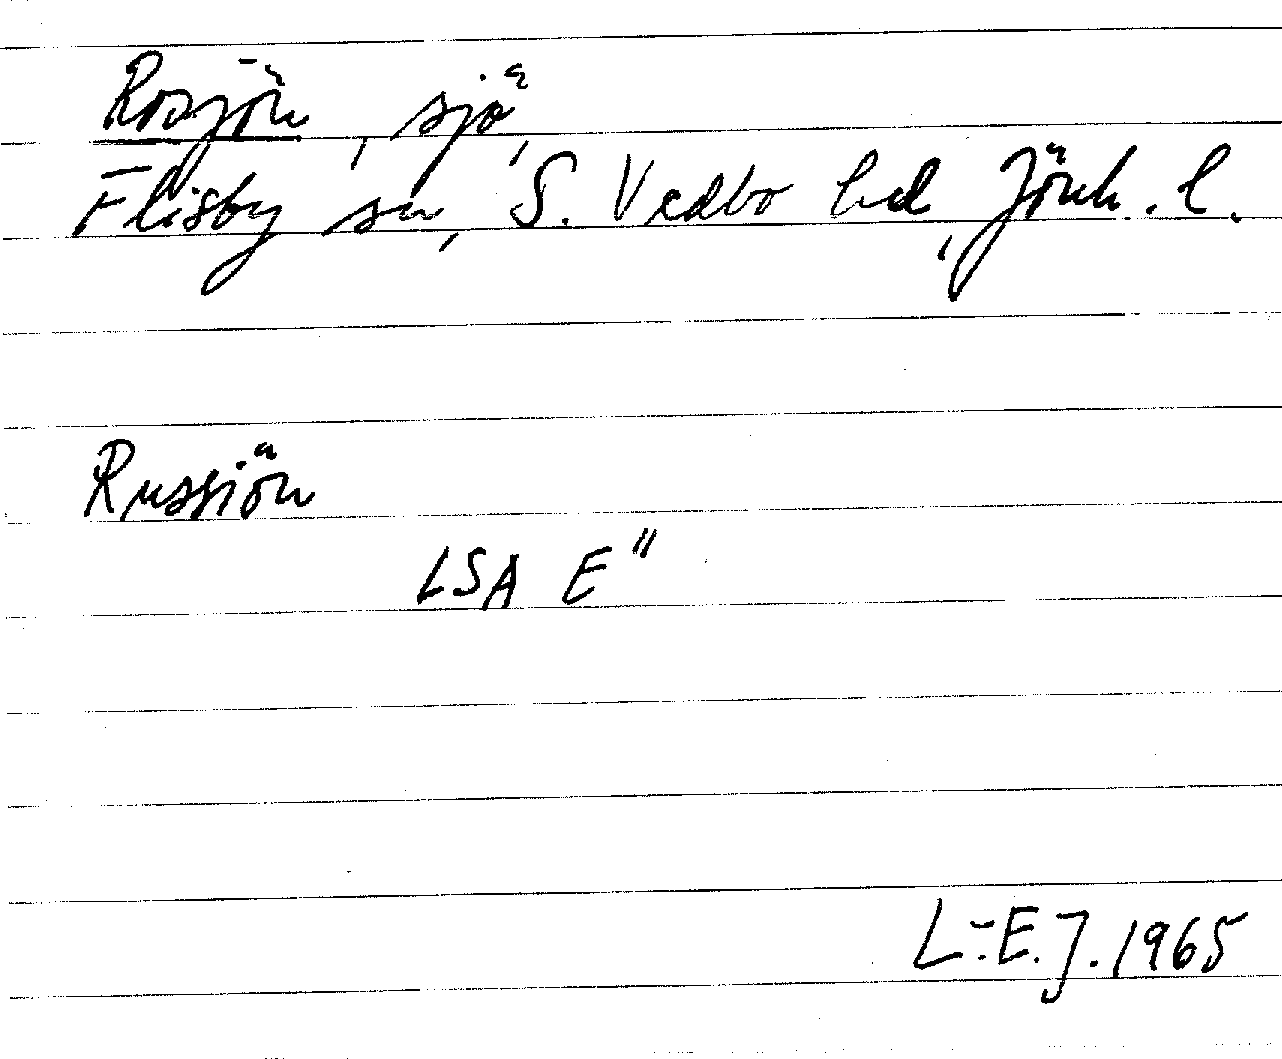 Rosjön, sjö,
Flisby sn, S. Vedbo hd, Jönk. l.
Russiön
LSA E"
L.-E. J. 1965